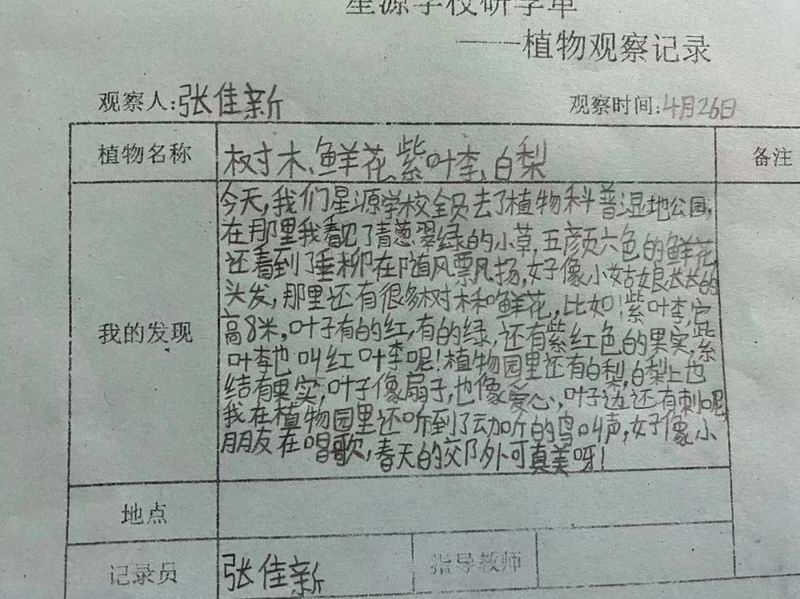 星源学校研学单
——植物观察记录
观察人:张佳新
观察时间:4月26日
植物名称
树木、鲜花、紫叶李、白梨
备注
我的发现
今天,我们星源学校全员去了植物科普湿地公园,
在那里我看见了青葱翠绿的小草,五颜六色的鲜花,
还看到了垂柳在随风飘扬,好像小姑娘长长的
头发,那里还有很多树木和鲜花,比如:紫叶李,它
高8米,叶子有的红,有的绿,还有紫红色的果实,紫
叶李也叫红叶李呢!植物园里还有白梨,白梨上也
结有果实,叶子像扇子,也像爱心,叶子边还有刺呢,
我在植物园里还听到了动听的鸟叫声,好像小
朋友在唱歌,春天的郊外可真美呀!
地点
记录员
张佳新
指导教师